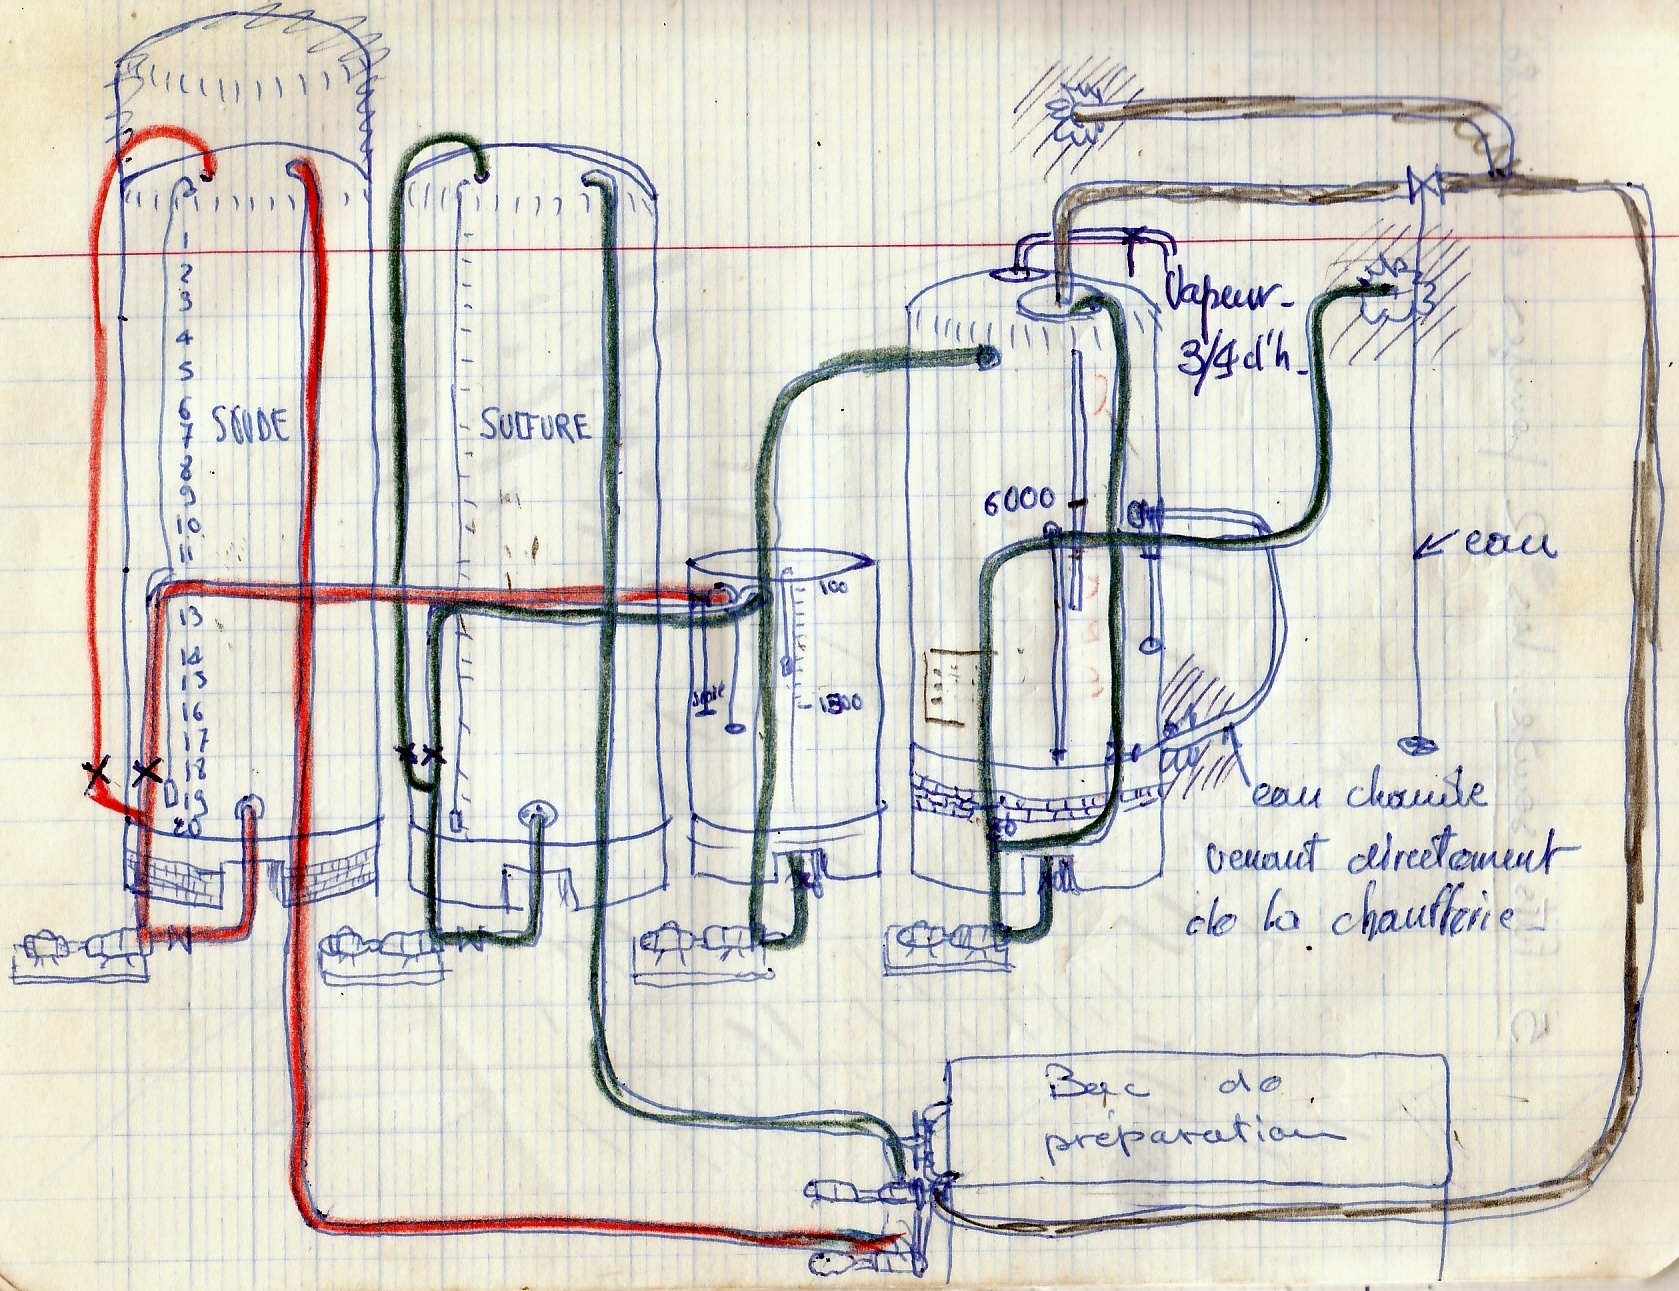 1
2
3
4
5
6
7
8
9
10
11
13
14
15
16
17
18
19
20
SOUDE
SULFURE
100
1500
6000
Vapeur-
3/4 d'h-
eau
eau chaude
venant directement
de la chaufferie-
Bac de
préparation